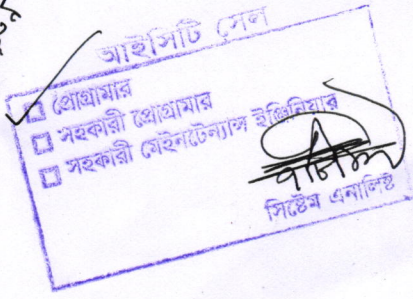 আইসিটি সেল
প্রোগ্রামার
সহকারী প্রোগ্রামার
সহকারী মেইনটেন্যান্স ইঞ্জিনিয়ার
সিস্টেম এনালিস্ট